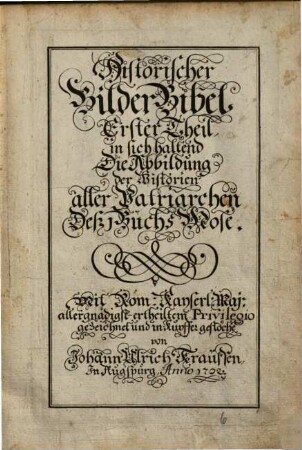 Historischer
Bilder Bibel,
Erster Theil
in sich haltend
Die Abbildung
der Historien
aller Patriarchen
Deß 1 Buchs Mose.
Mit Röm: Kayserl: Maj:
allergnädigst ertheiltem Privilegio
gezeichnet und in Kupffer gestochē
von
Johann Ulrich Kraussen
In Augspurg Anno 1702.
6